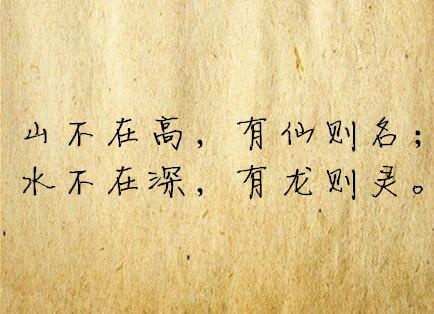 山不在高，有仙则名；
水不在深，有龙则灵。